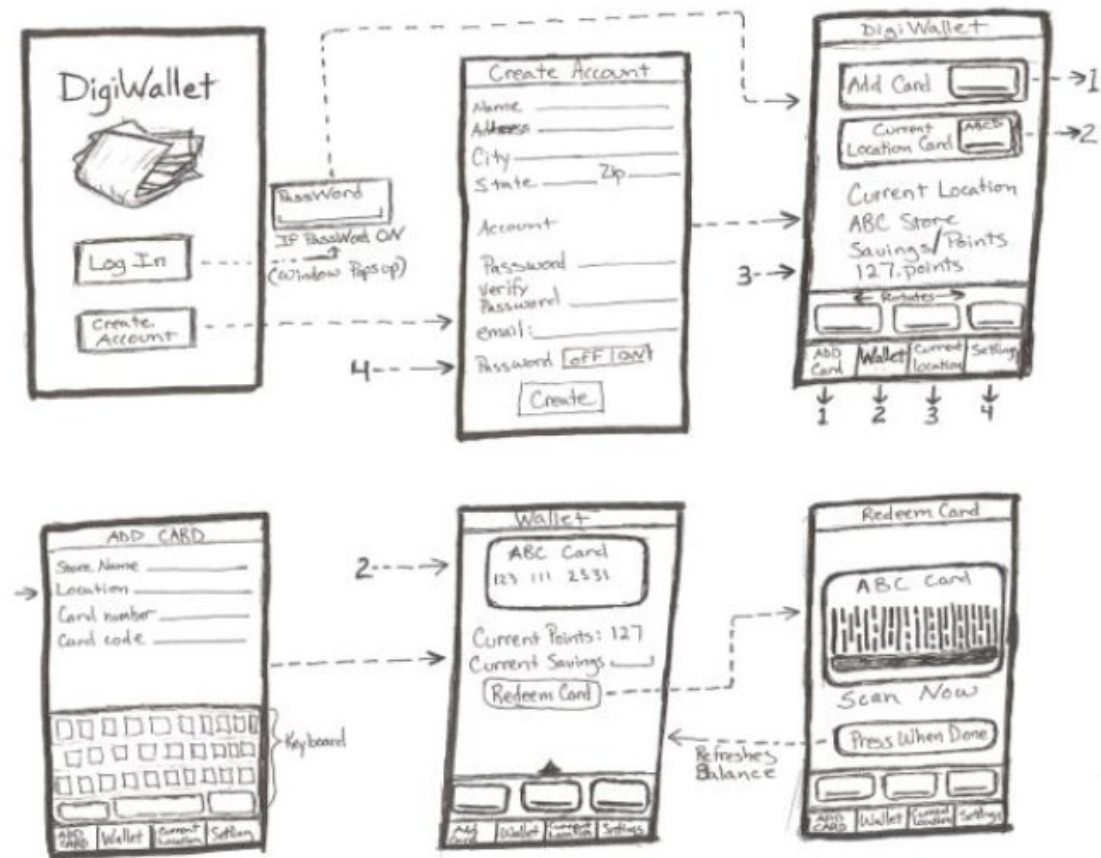 DigiWallet
Log In
Create
Account
PassWord
If PassWord ON
(Window Pops up)
Create Account
Name
Address
City
State Zip
Account
Password
Verify
Password
email:
4
Password OFF ON
Create
Digi Wallet
Add Card
1
Current
Location Card
ABCD
2
Current Location
ABC Store
Savings/Points
3
127.points
Rotates
ADD
Card
Wallet
Current
Location
Setting
1 2 3 4
ADD CARD
Store Name
Location
Card number
Card code
Keyboard
ADD
CARD
Wallet
Current
Location
Setting
2
Wallet
ABC Card
123 111 2331
Current Points: 127
Current Savings
Redeem Card
Refreshes
Balance
Add
Card
Wallet
Current
Location
Settings
Redeem Card
ABC Card
Scan Now
Press When Done
ADD
CARD
Wallet
Current
Location
Settings